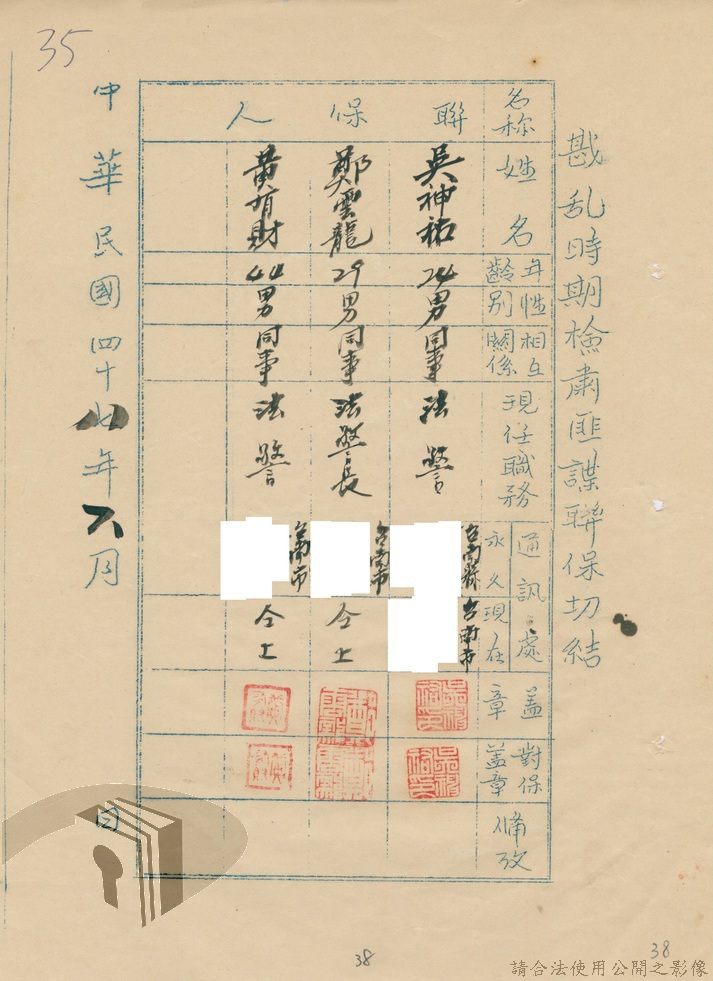 戡乱時期檢肅匪諜聯保切結
名称 聯保人
姓名 吳神祐 鄭雲龍 黃有財
年齡 24 29 44
性別 男 男 男
相互關係 同事 同事 同事
現任職務 法警 法警長 法警
通訊處
永久 台南縣 台南市 台南市
現在 台南市 仝上 仝上
蓋章
對保蓋章
備攷
中華民國四十七年八月 日
35
38
38
請合法使用公開之影像